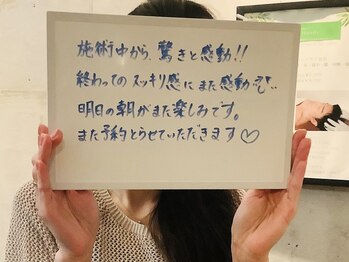 施術中から、驚きと感動!!
終わってのスッキリ感にまた感動
明日の朝がまた楽しみです。
また予約とらせていただきます♡